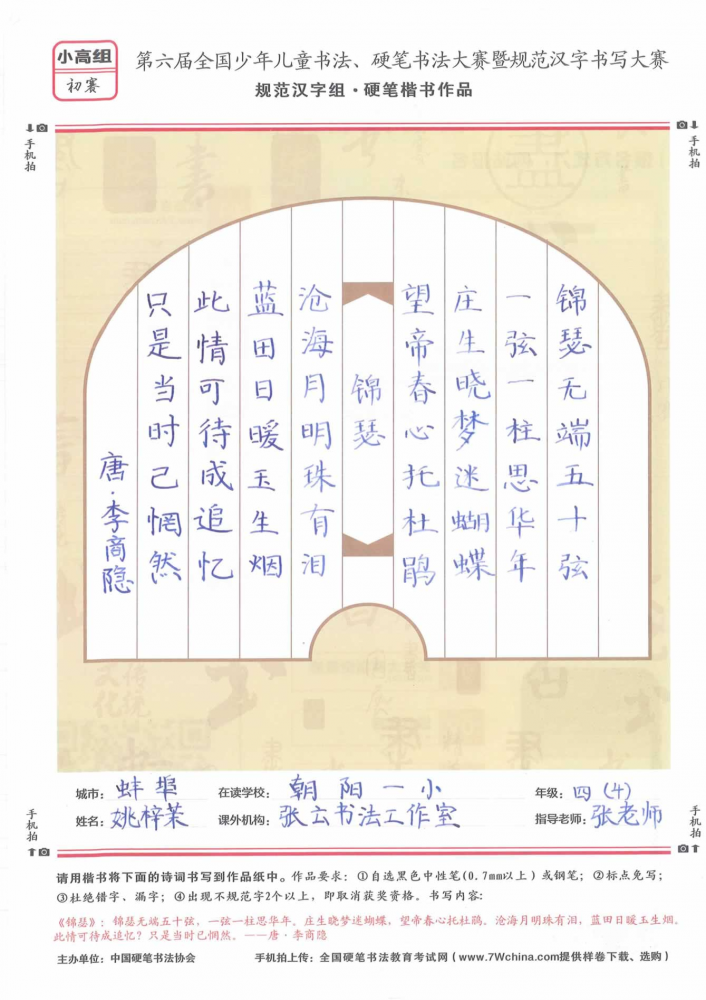 小高组
初赛
第六届全国少年儿童书法、硬笔书法大赛暨规范汉字书写大赛
规范汉字组·硬笔楷书作品
手机拍
手机拍
锦瑟无端五十弦
一弦一柱思华年
庄生晓梦迷蝴蝶
望帝春心托杜鹃
锦瑟
沧海月明珠有泪
蓝田日暖玉生烟
此情可待成追忆
只是当时己惘然
唐·李商隐
城市：蚌埠 在读学校：朝阳一小 年级：四（4）
姓名：姚梓茉 课外机构：张云书法工作室 指导老师：张老师
手机拍
手机拍
请用楷书将下面的诗词书写到作品纸中。作品要求：①自选黑色中性笔(0.7mm以上)或钢笔；②标点免写；
③杜绝错字、漏字；④出现不规范字2个以上，即取消获奖资格。书写内容：
《锦瑟》：锦瑟无端五十弦，一弦一柱思华年。庄生晓梦迷蝴蝶，望帝春心托杜鹃。沧海月明珠有泪，蓝田日暖玉生烟。
此情可待成追忆？只是当时已惘然。——唐·李商隐
主办单位：中国硬笔书法协会 手机拍上传：全国硬笔书法教育考试网（www.7Wchina.com提供样卷下载、选购）